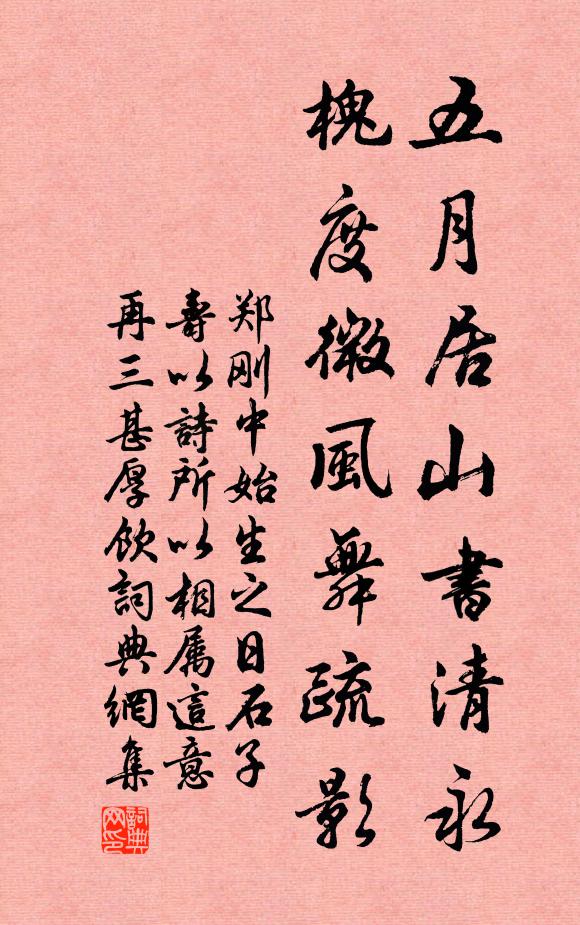 五月居山書清永
槐度微風舞疏影
郑刚中始生之日石子
壽以詩所以相属這意
再三甚厚飲詞典網集
詞典
网印